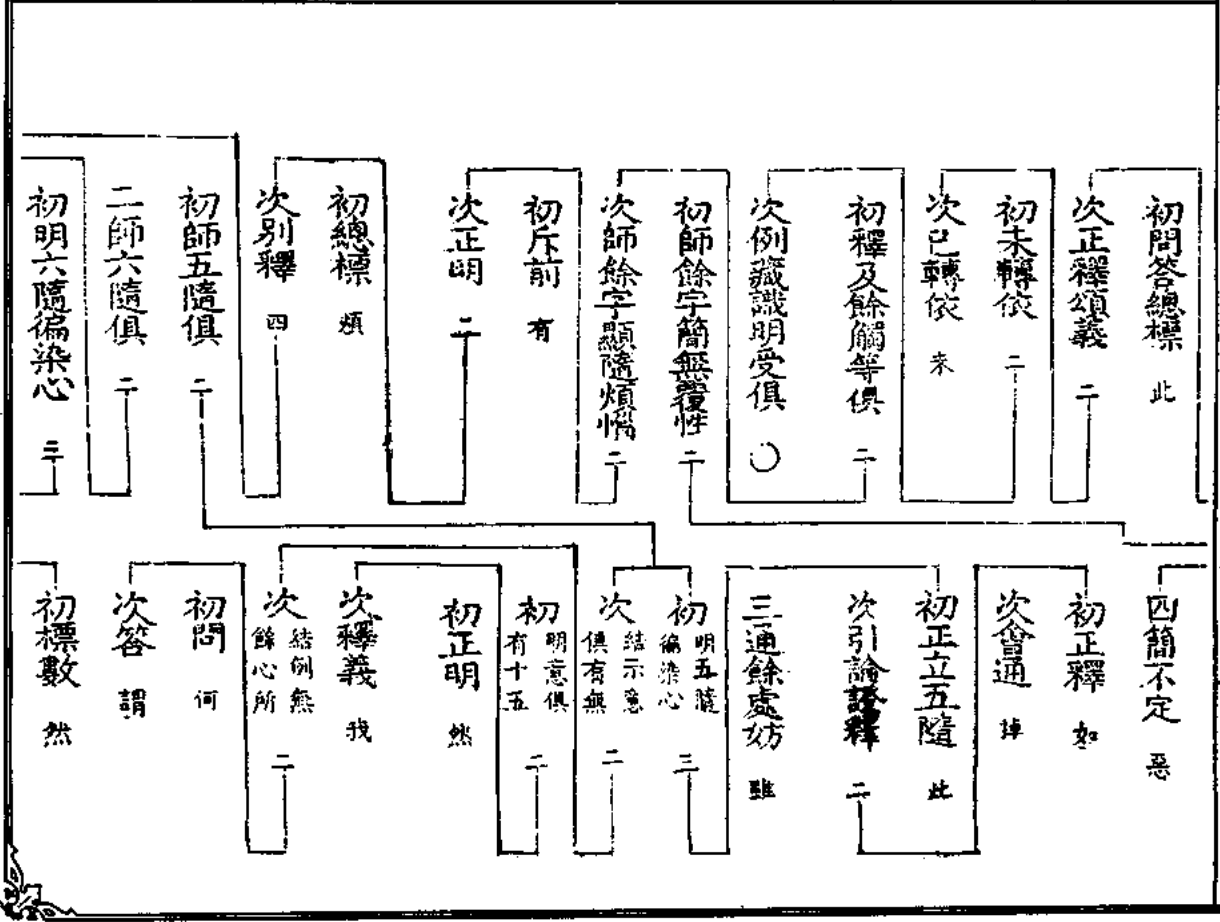 初問答總標 此
次正釋頌義 二
初未轉依 二
次已轉依 未
初釋及餘觸等俱 二
次例藏識明受俱 〇
初師餘字簡無覆性 二
次師餘字顯隨煩惱 二
初斥前 有
次正明 二
初總標 煩
次別釋 四
初師五隨俱 二
二師六隨俱 二
初明六隨徧染心 三
四簡不定 惡
初正釋 如
次會通 掉
初正立五隨 此
次引論證釋 二
三通餘處妨 雖
初明五隨徧染心 三
次結示意俱有無 二
初明意俱有十五 二
初正明 然
次釋義 我
次結例無餘心所 二
初問 何
次答 謂
初標數 然